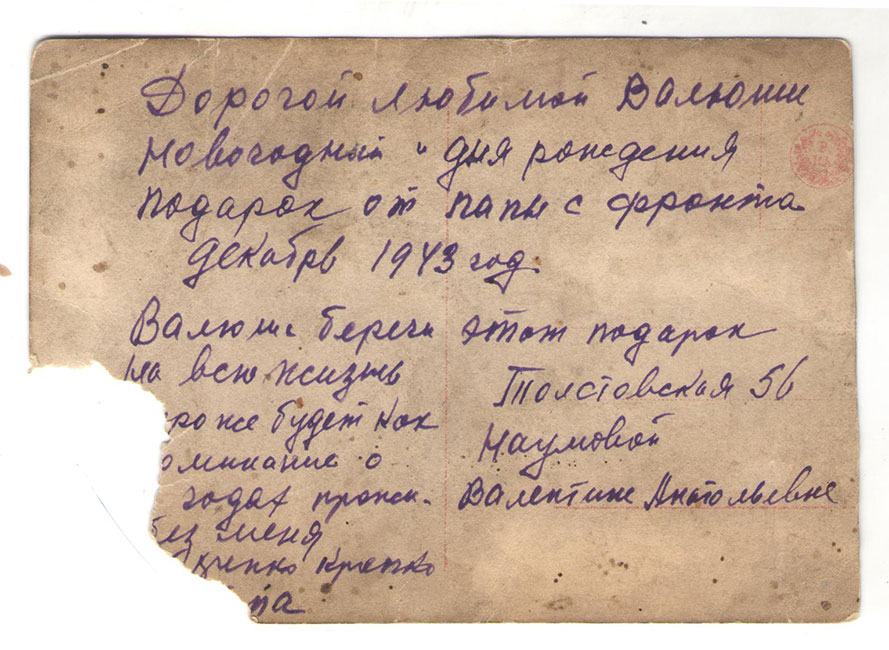 Дорогой любимой Валюши
Новогодный и дня рождения
подарок от папы с фронта
декабрь 1943 год.
Валюша береги этот подарок
на всю жизнь
роже будет как
оминание о
годах прожи-
без меня
крепко
па
Толстовская 56
Наумовой
Валентине Анатольевне